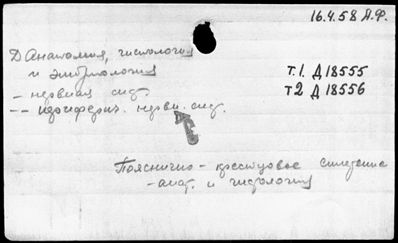 16.4.58 А.Ф.
Д Анатомия, гистология
и эмбриология
Т.1. Д 18555
- нервная сист.
Т2 Д 18556
-- периферич. нервн. сист.
Пояснично - крестцовое сплетение
- анат. и гистология